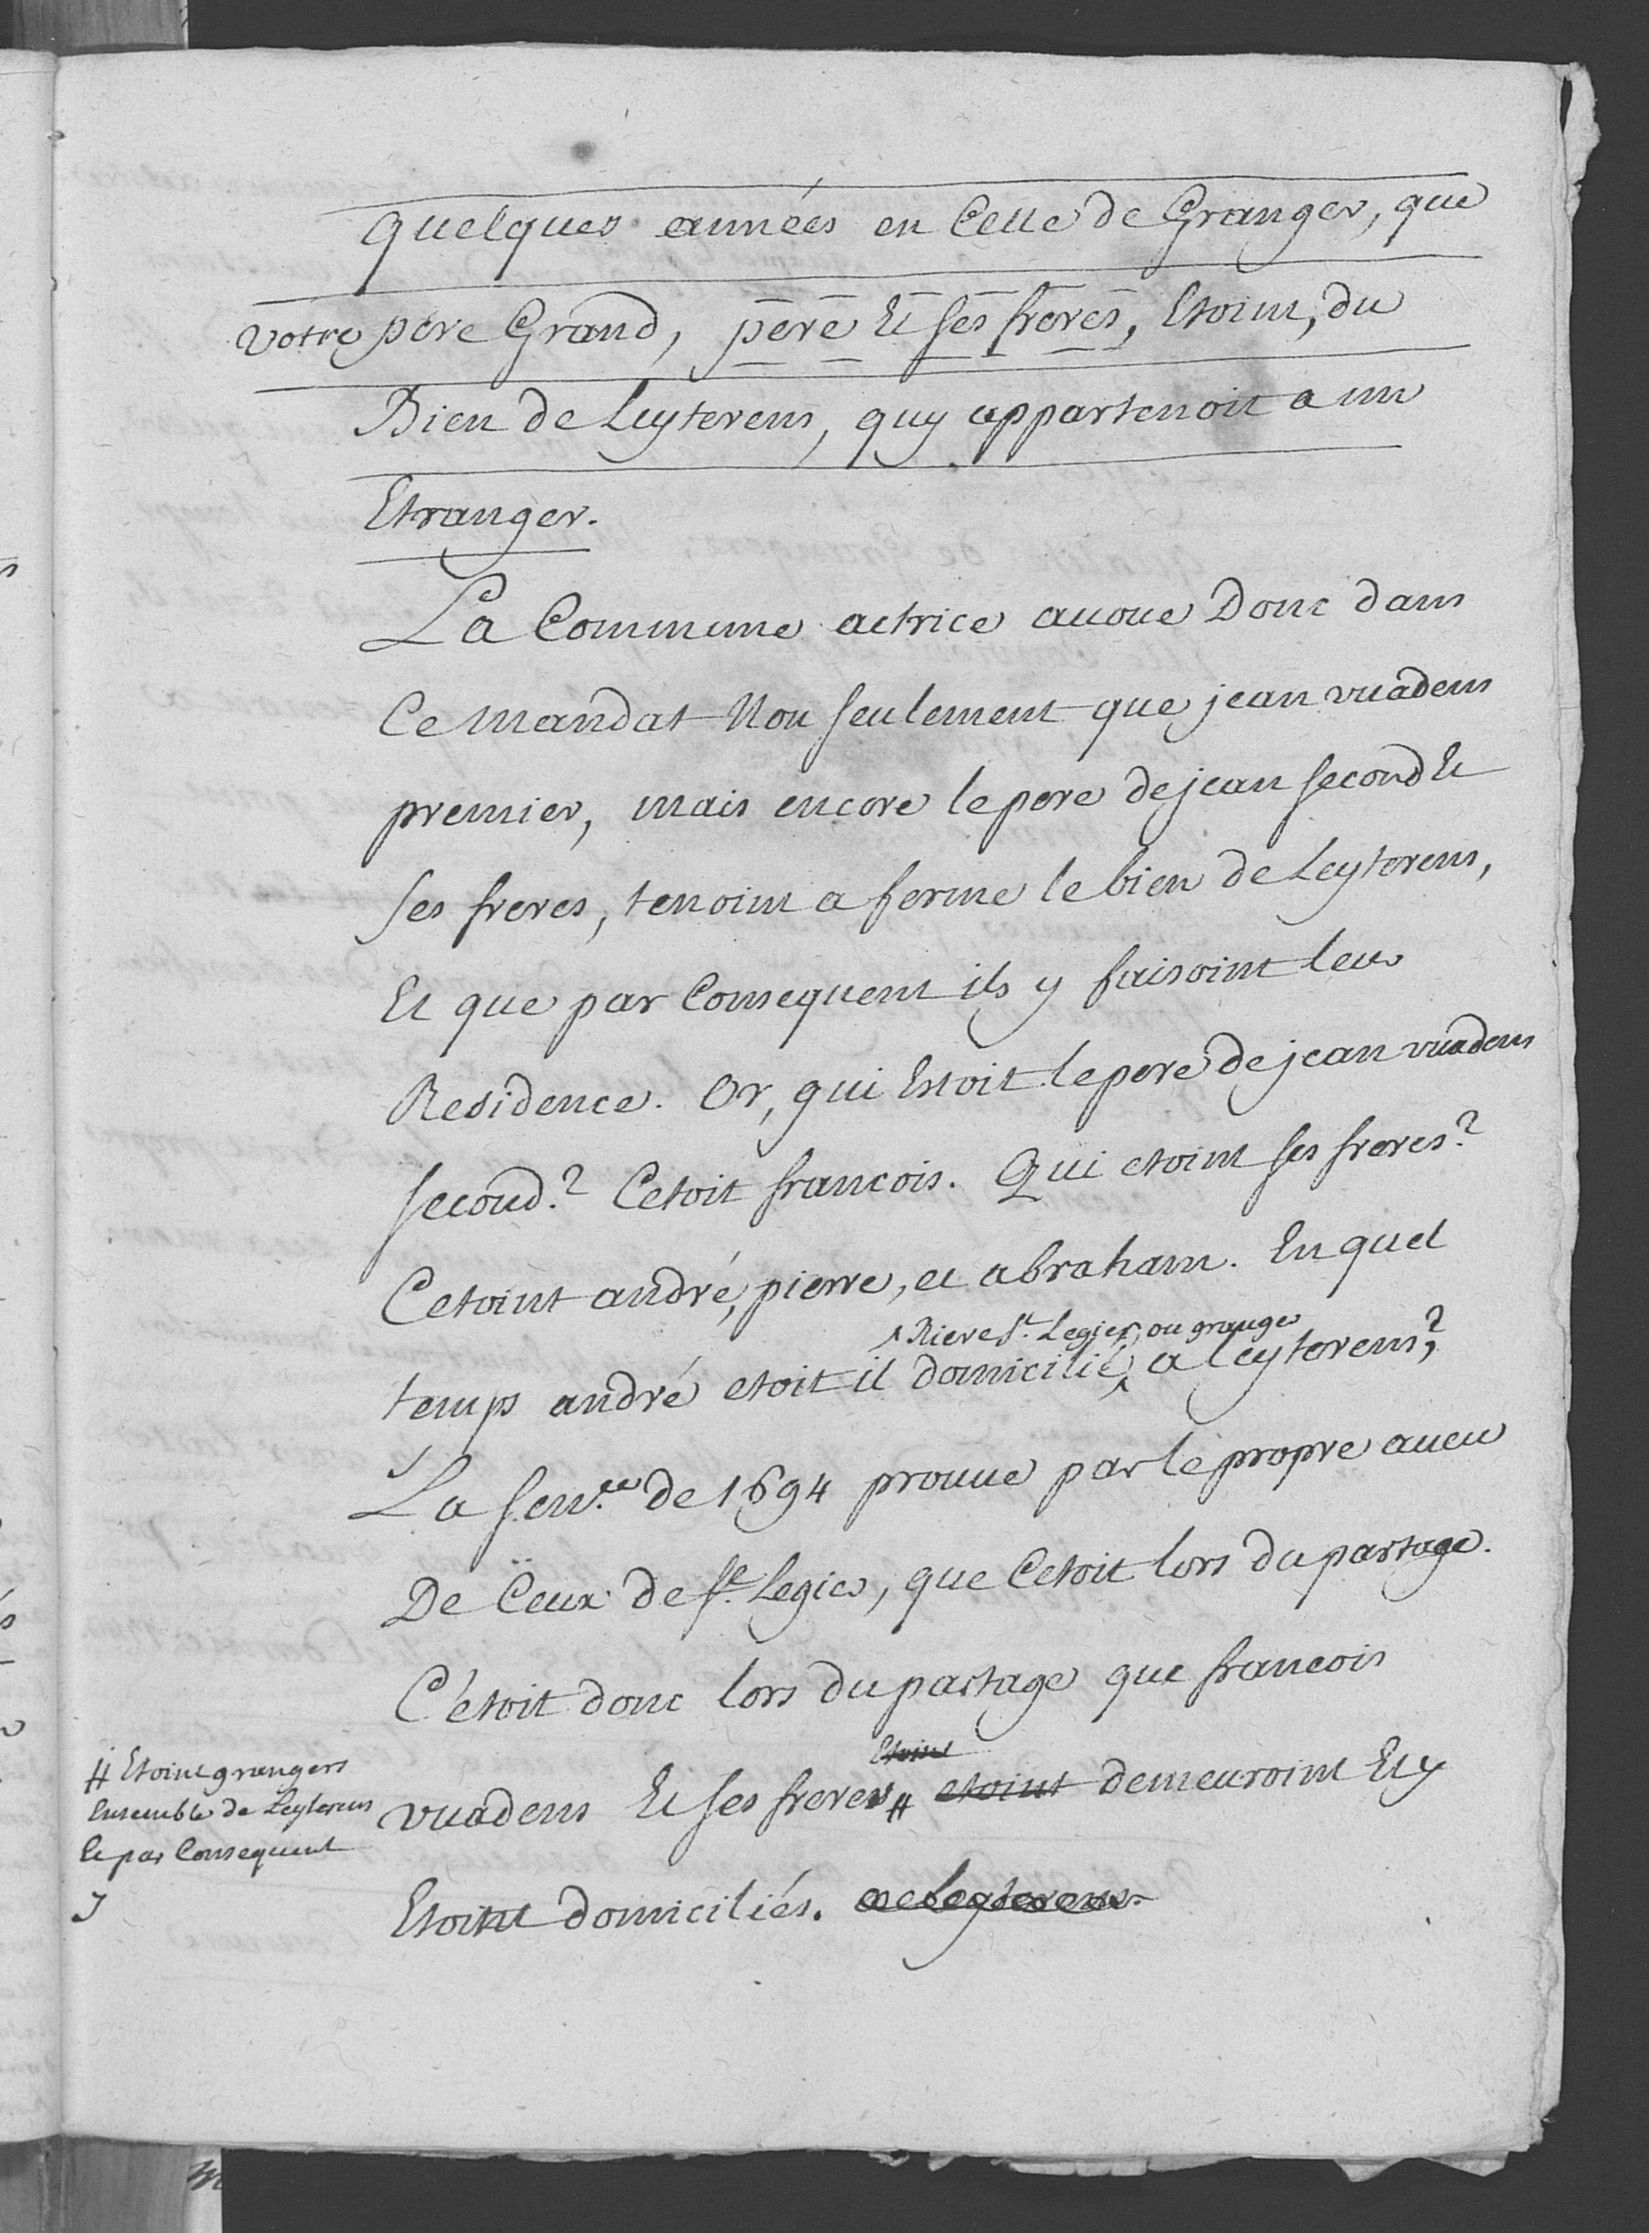 quelques années en Celle de Granger, que
votre père Grand, père Et ses freres, Etoint, du
Bien de Leyterens, quy appartenoit a un
Etranger.
La Commune actrice auoue Donc dans
Ce mandat Non seulement que jean vuadens
premier, mais encore le pere de jean second Et
ses freres, tenoint a ferme le bien de Leyterens,
Et que par Consequent ils y faisoint leur
Residence. Or, qui Estoit le pere de jean vuadens
second? Cetoit francois. Qui etoint ses freres?
Cetoint andré, pierre, et abraham. En quel
Riere St. Legier, ou granger
temps andré etoit il domicilié, a leyterens?
La Sence. de 1694 prouue par le propre aueu
De Ceux de St. Legier, que Cetoit lors du partage.
C'étoit donc lors du partage que francois
Etoint
vuadens Et ses freres # etoint demeuroint Et y
# Etoint grangers
Ensemble de Leyterens
Et par Consequent
y
Etoint domiciliés. a Leyterens.